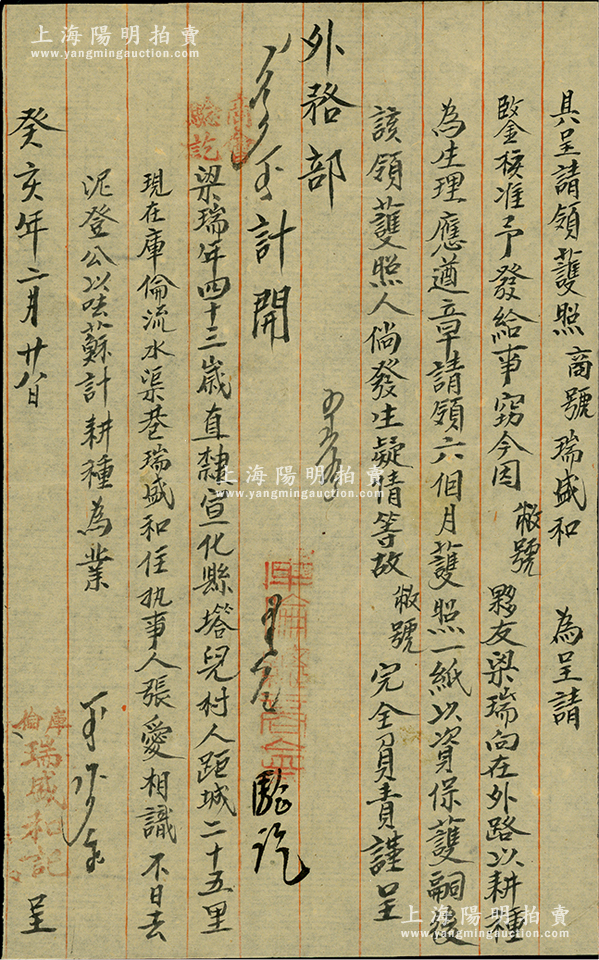 具呈請領護照商號瑞盛和 為呈請
鑒核准予發給事竊今因敝號夥友梁瑞向在外路以耕種
為生理應遵章請領六個月護照一紙以資保護嗣後
該領護照人倘發生疑情等故敝號完全負責謹呈
外務部
計開
驗訖
梁瑞年四十三歲直隸宣化縣塔兒村人距城二十五里
現在庫倫流水渠巷瑞盛和住執事人張愛相識不日去
泥登公以呿蘇計耕種為業
呈
癸亥年二月廿八日
商會驗訖
庫倫總商會
庫倫瑞盛和記
上海陽明拍賣
www.yangmingauction.com
上海陽明拍賣
www.yangmingauction.com
上海陽明拍賣
www.yangmingauction.com